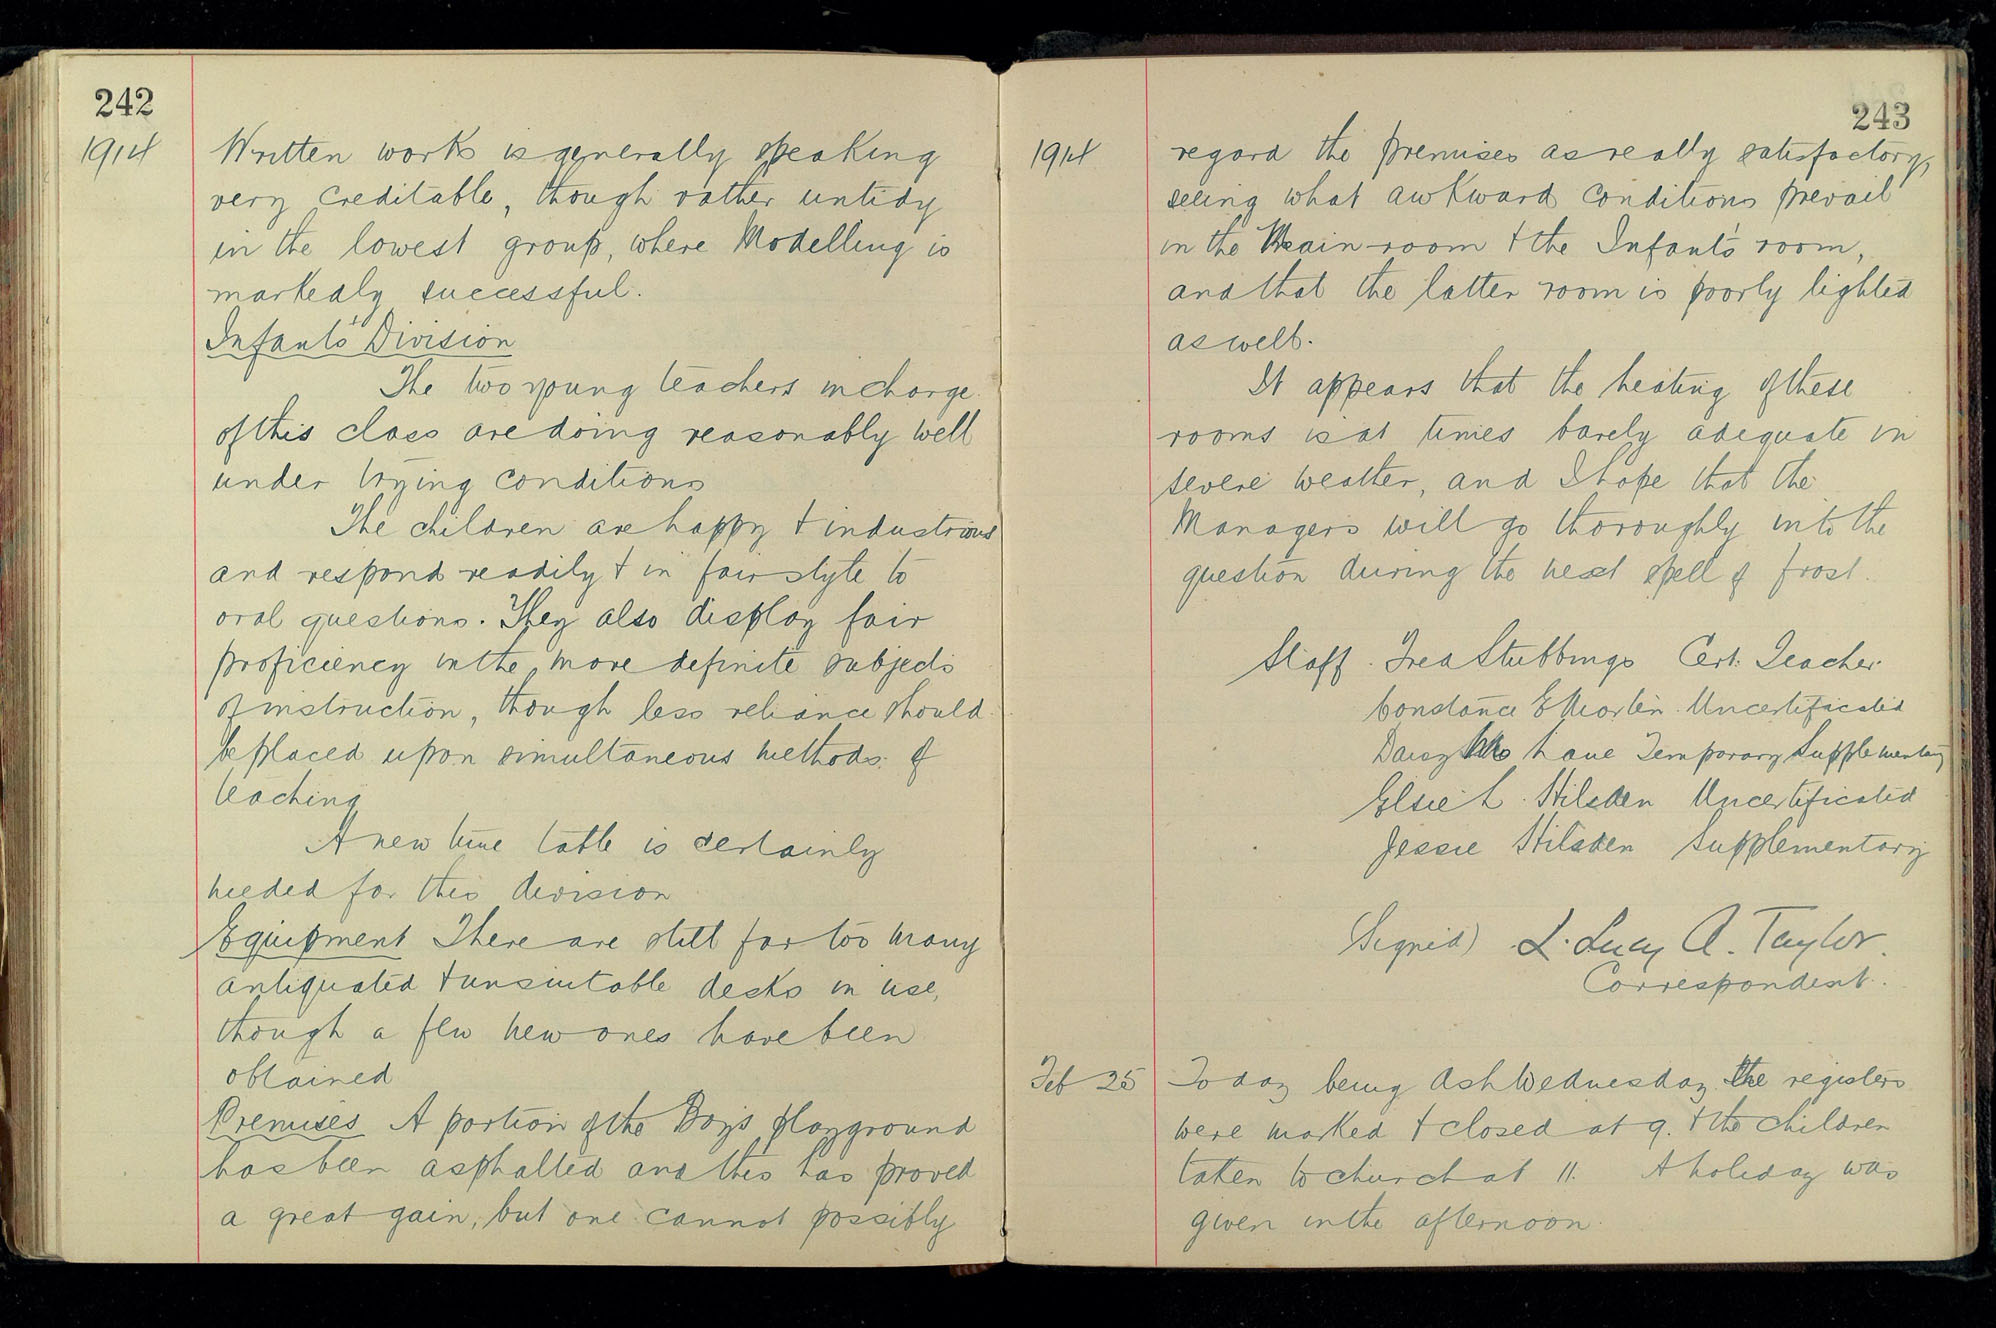 242
1914
Written work is generally speaking
very creditable, though rather untidy
in the lowest group, where Modelling is
markedly successful.
Infants' Division
The two young teachers in charge
of this class are doing reasonably well
under trying conditions
The children are happy + industrious
and respond readily + in fair style to
oral questions. They also display fair
proficiency in the more definite subjects
of instruction, though less reliance should
be placed upon simultaneous methods of
teaching
A new time table is certainly
needed for this division
Equipment There are still far too many
antiquated + unsuitable desks in use,
though a few new ones have been
obtained
Premises A portion of the Boy's playground
has been asphalted and this has proved
a great gain, but one cannot possibly
243
1914
regard the premises as really satisfactory,
seeing what awkward conditions prevail
in the Main-room + the Infants' room,
and that the latter room is poorly lighted
as well.
It appears that the heating of these
rooms is at times barely adequate in
severe weather, and I hope that the
Managers will go thoroughly into the
question during the next spell of frost.
Staff. Fred Stubbings Cert. Teacher.
Constance E Martin Uncertificated
Daisy Lane Temporary Supplementary
Elsie L. Hilsden Uncertificated
Jessie Hilsden Supplementary
(Signed) L. Lucy A. Taylor.
Correspondent.
Feb 25
Today being Ash Wednesday the registers
were marked + closed at 9. + the children
taken to church at 11. A holiday was
given in the afternoon.